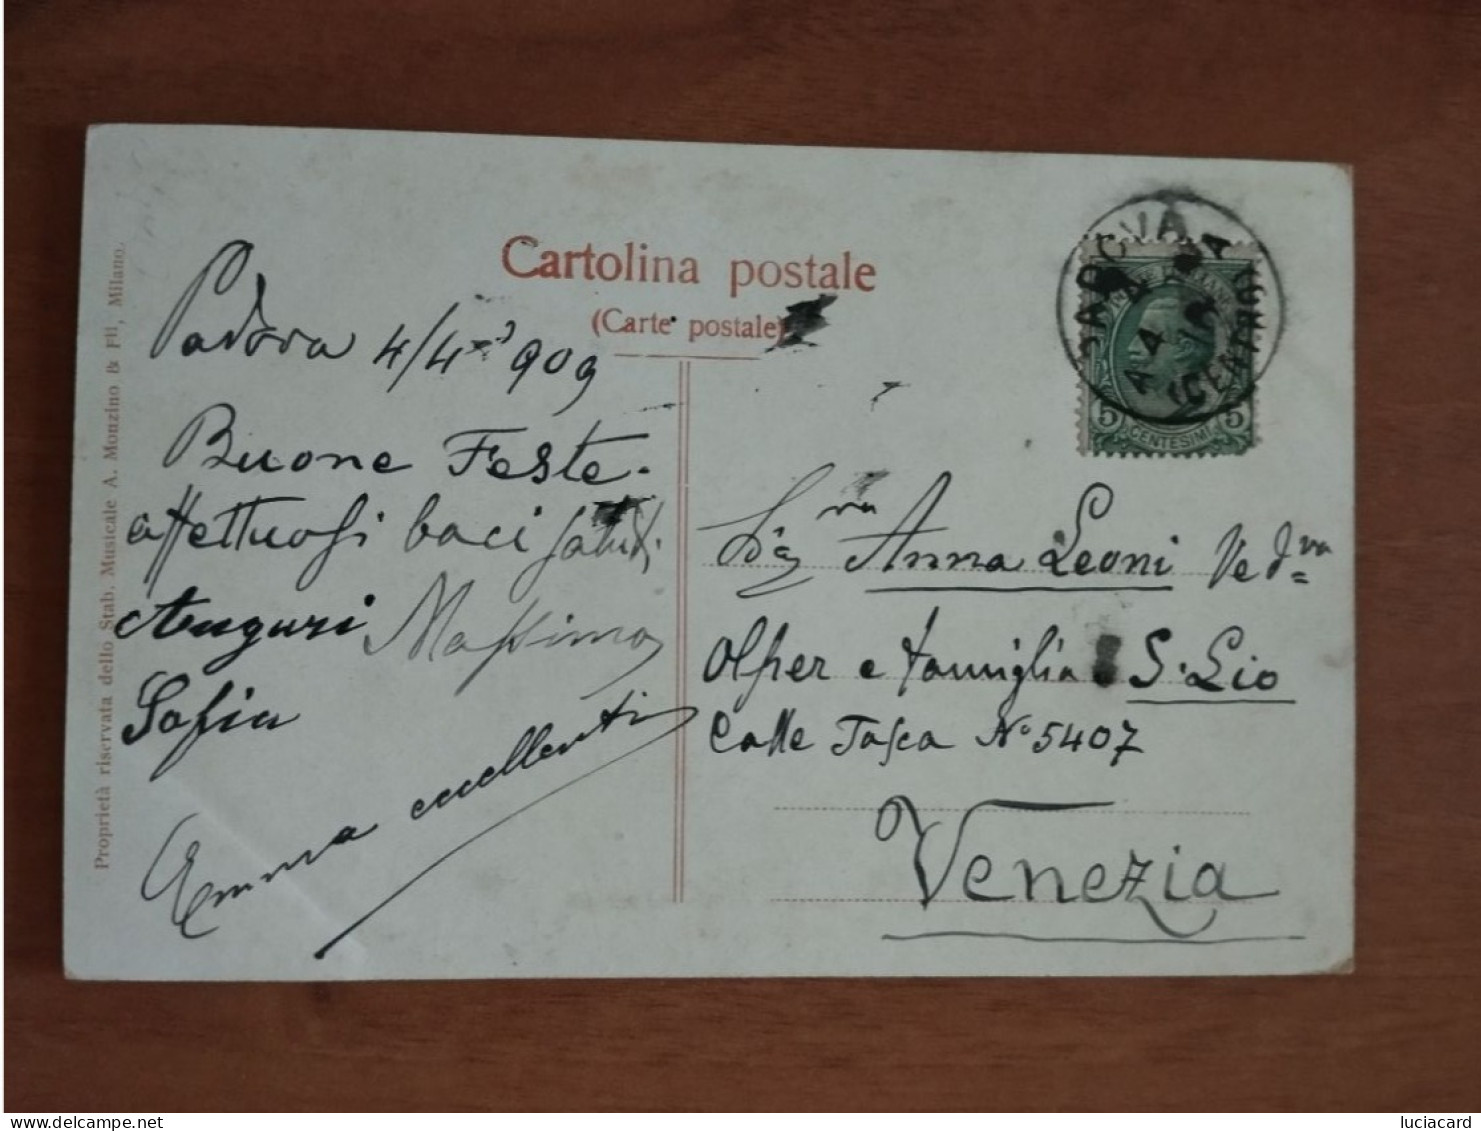 Cartolina postale
(Carte postale)
Padova 4/4 909
Buone Feste.
affettuosi baci saluti.
Auguri Massimo
Sofia
Emma eccellenti
PADOVA
(CENTRO)
5 CENTESIMI 5
Sigra Anna Leoni Vedva
Olper e famiglia S. Lio
Calle Tasca No 5407
Venezia
Proprietà riservata dello Stab. Musicale A. Monzino & Fli, Milano.
delcampe.net
luciacard